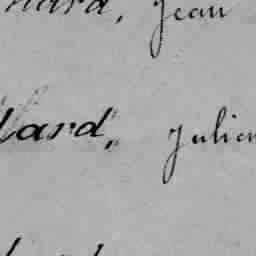 nard, Jean
lard, Julien